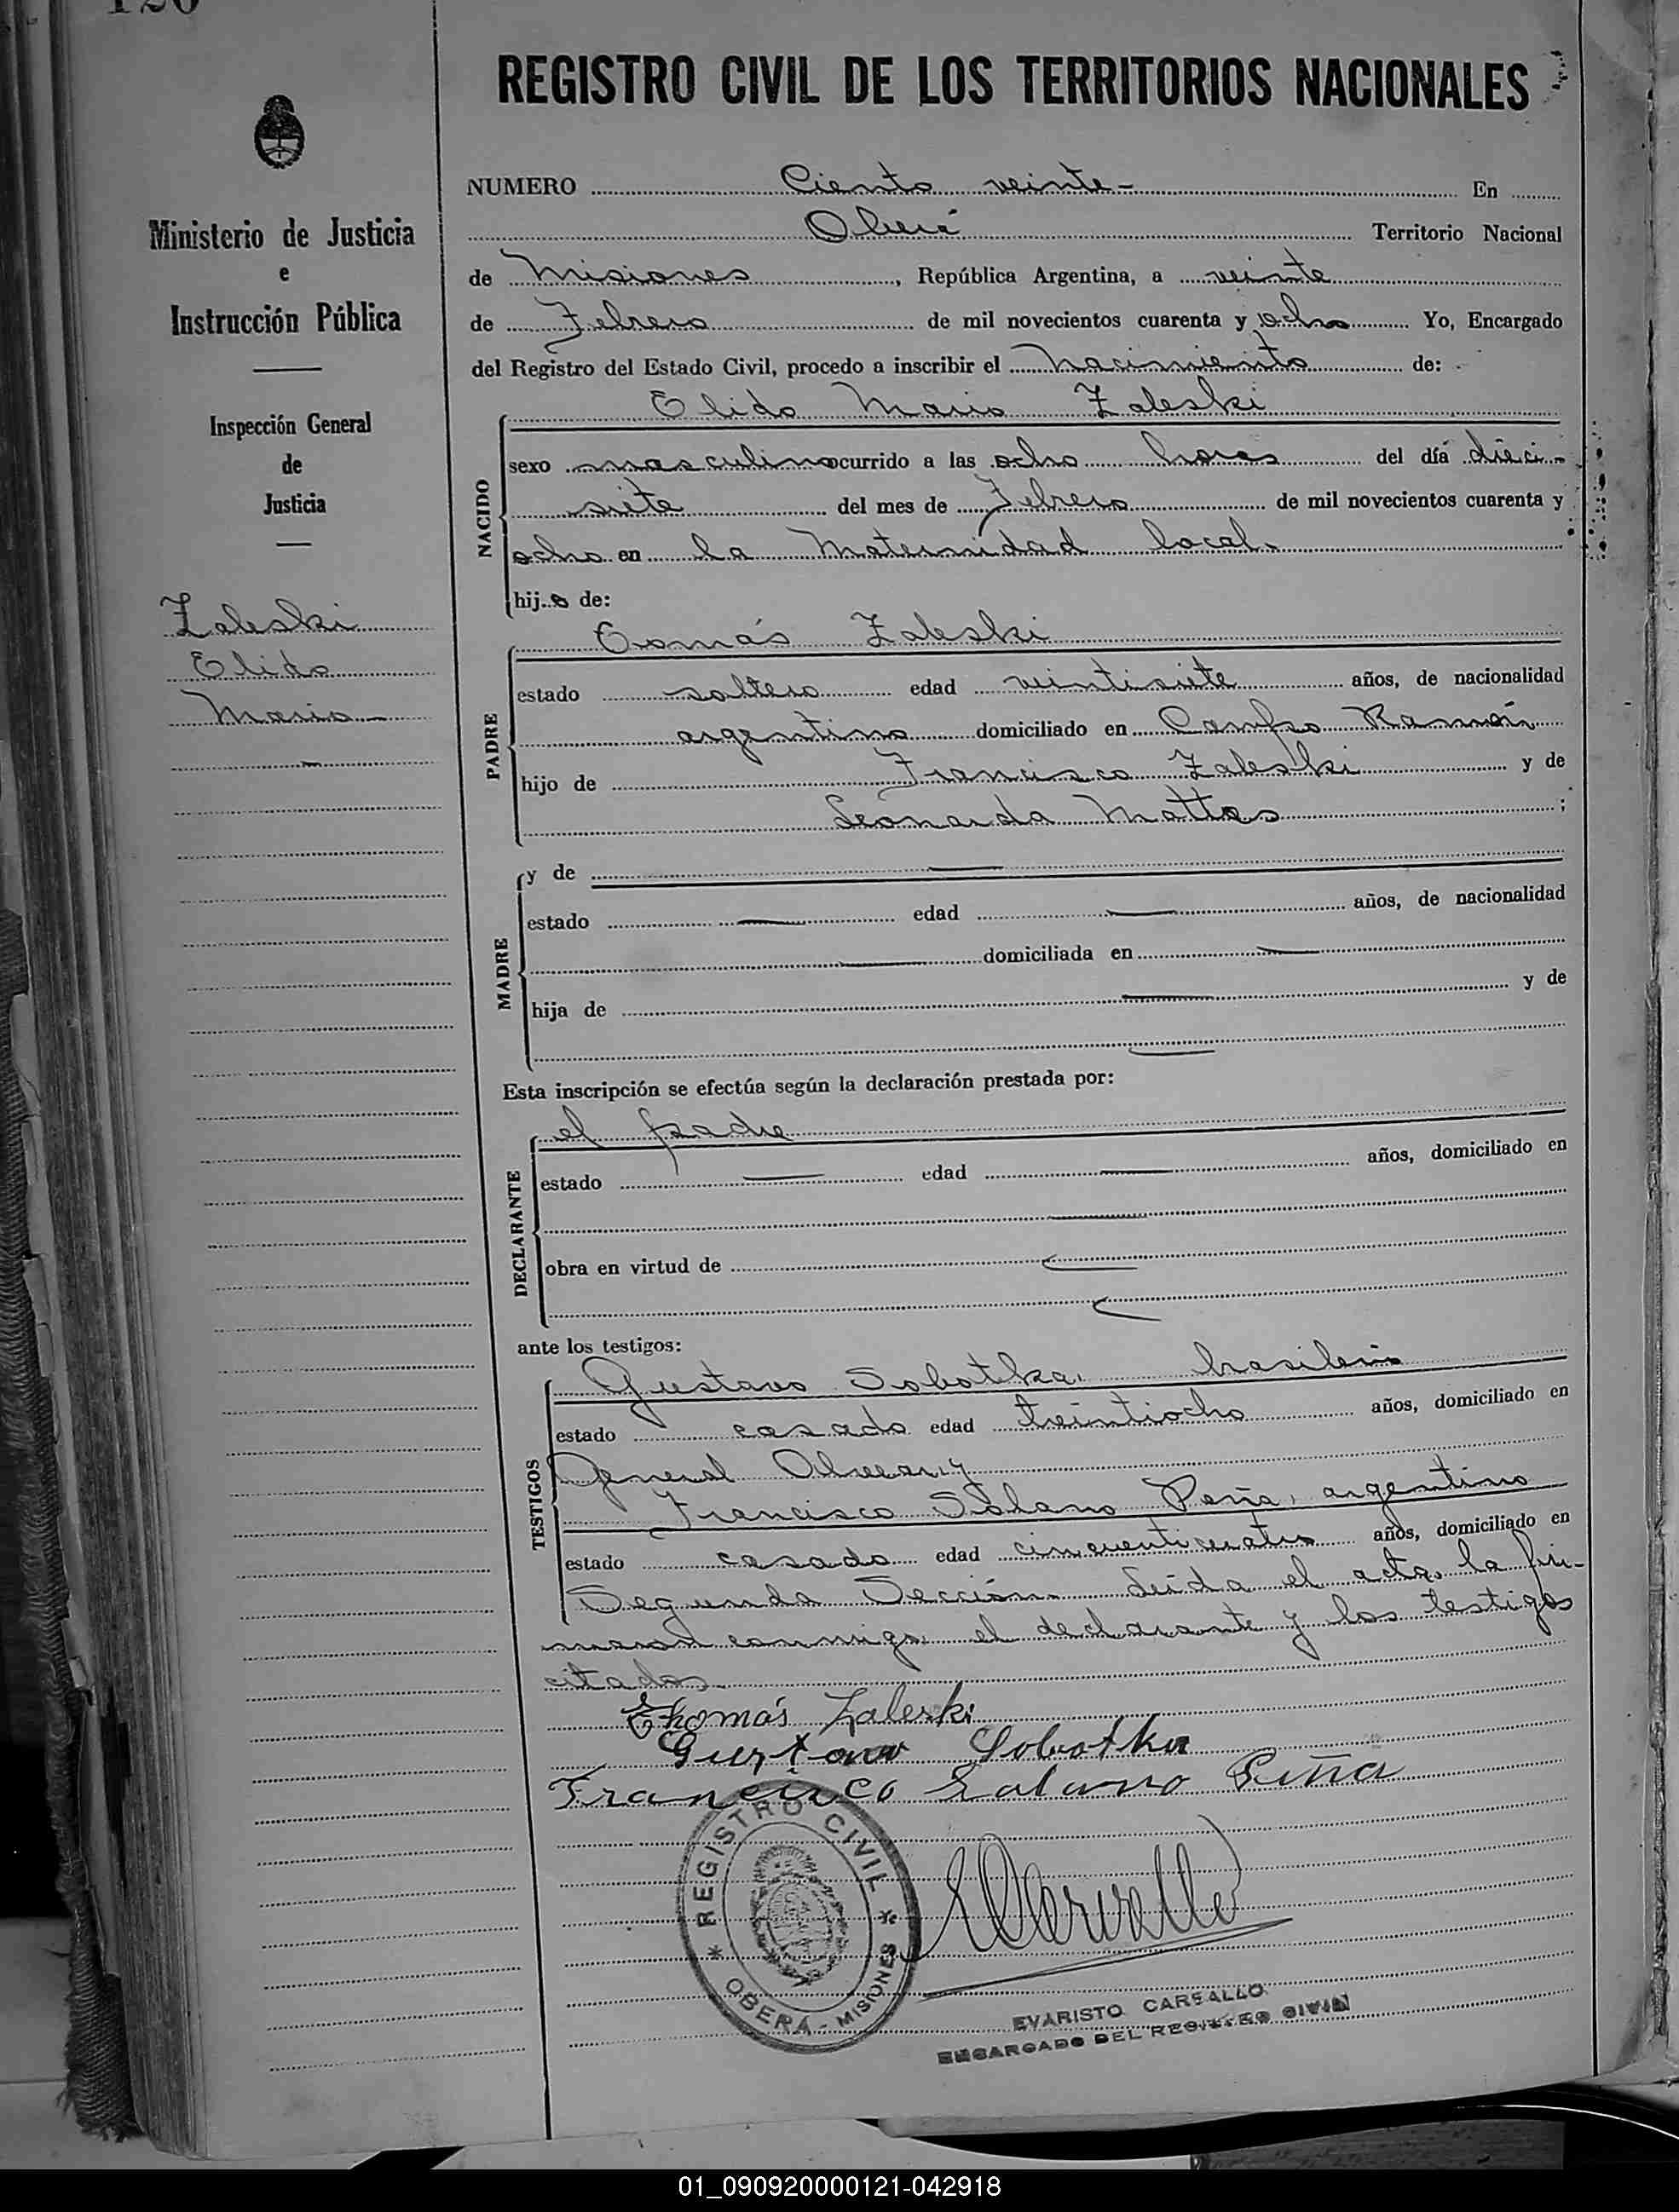 120
REGISTRO CIVIL DE LOS TERRITORIOS NACIONALES
Ministerio de Justicia
e
Instrucción Pública
Inspección General
de
Justicia
Zaleski
Elido
Mario
NUMERO Ciento veinte - En
Oberá Territorio Nacional
de Misiones, República Argentina, a veinte
de Febrero de mil novecientos cuarenta y ocho Yo, Encargado
del Registro del Estado Civil, procedo a inscribir el nacimiento de:
Elido Mario Zaleski
NACIDO
sexo masculino ocurrido a las ocho horas del día dieci-
siete del mes de Febrero de mil novecientos cuarenta y
ocho en la Maternidad local.
hijo de:
Tomás Zaleski
PADRE
estado soltero edad veintisiete años, de nacionalidad
argentino domiciliado en Campo Ramón
hijo de Francisco Zaleski y de
Leonarda Mattos;
MADRE
y de
estado edad años, de nacionalidad
domiciliada en
hija de y de
Esta inscripción se efectúa según la declaración prestada por:
el padre
DECLARANTE
estado edad años, domiciliado en
obra en virtud de
ante los testigos:
Gustavo Sobotka, brasilero
TESTIGOS
estado casado edad treintiocho años, domiciliado en
General Alvear y
Francisco Solano Peña, argentino
estado casado edad cincuenticuatro años, domiciliado en
Segunda Sección. Leída el acta, la fir-
maron conmigo el declarante y los testigos
citados.
Thomás Zaleski
Gustavo Sobotka
Francisco Solano Peña
REGISTRO CIVIL
OBERÁ - MISIONES
EVARISTO CARBALLO
ENCARGADO DEL REGISTRO CIVIL
01_090920000121-042918